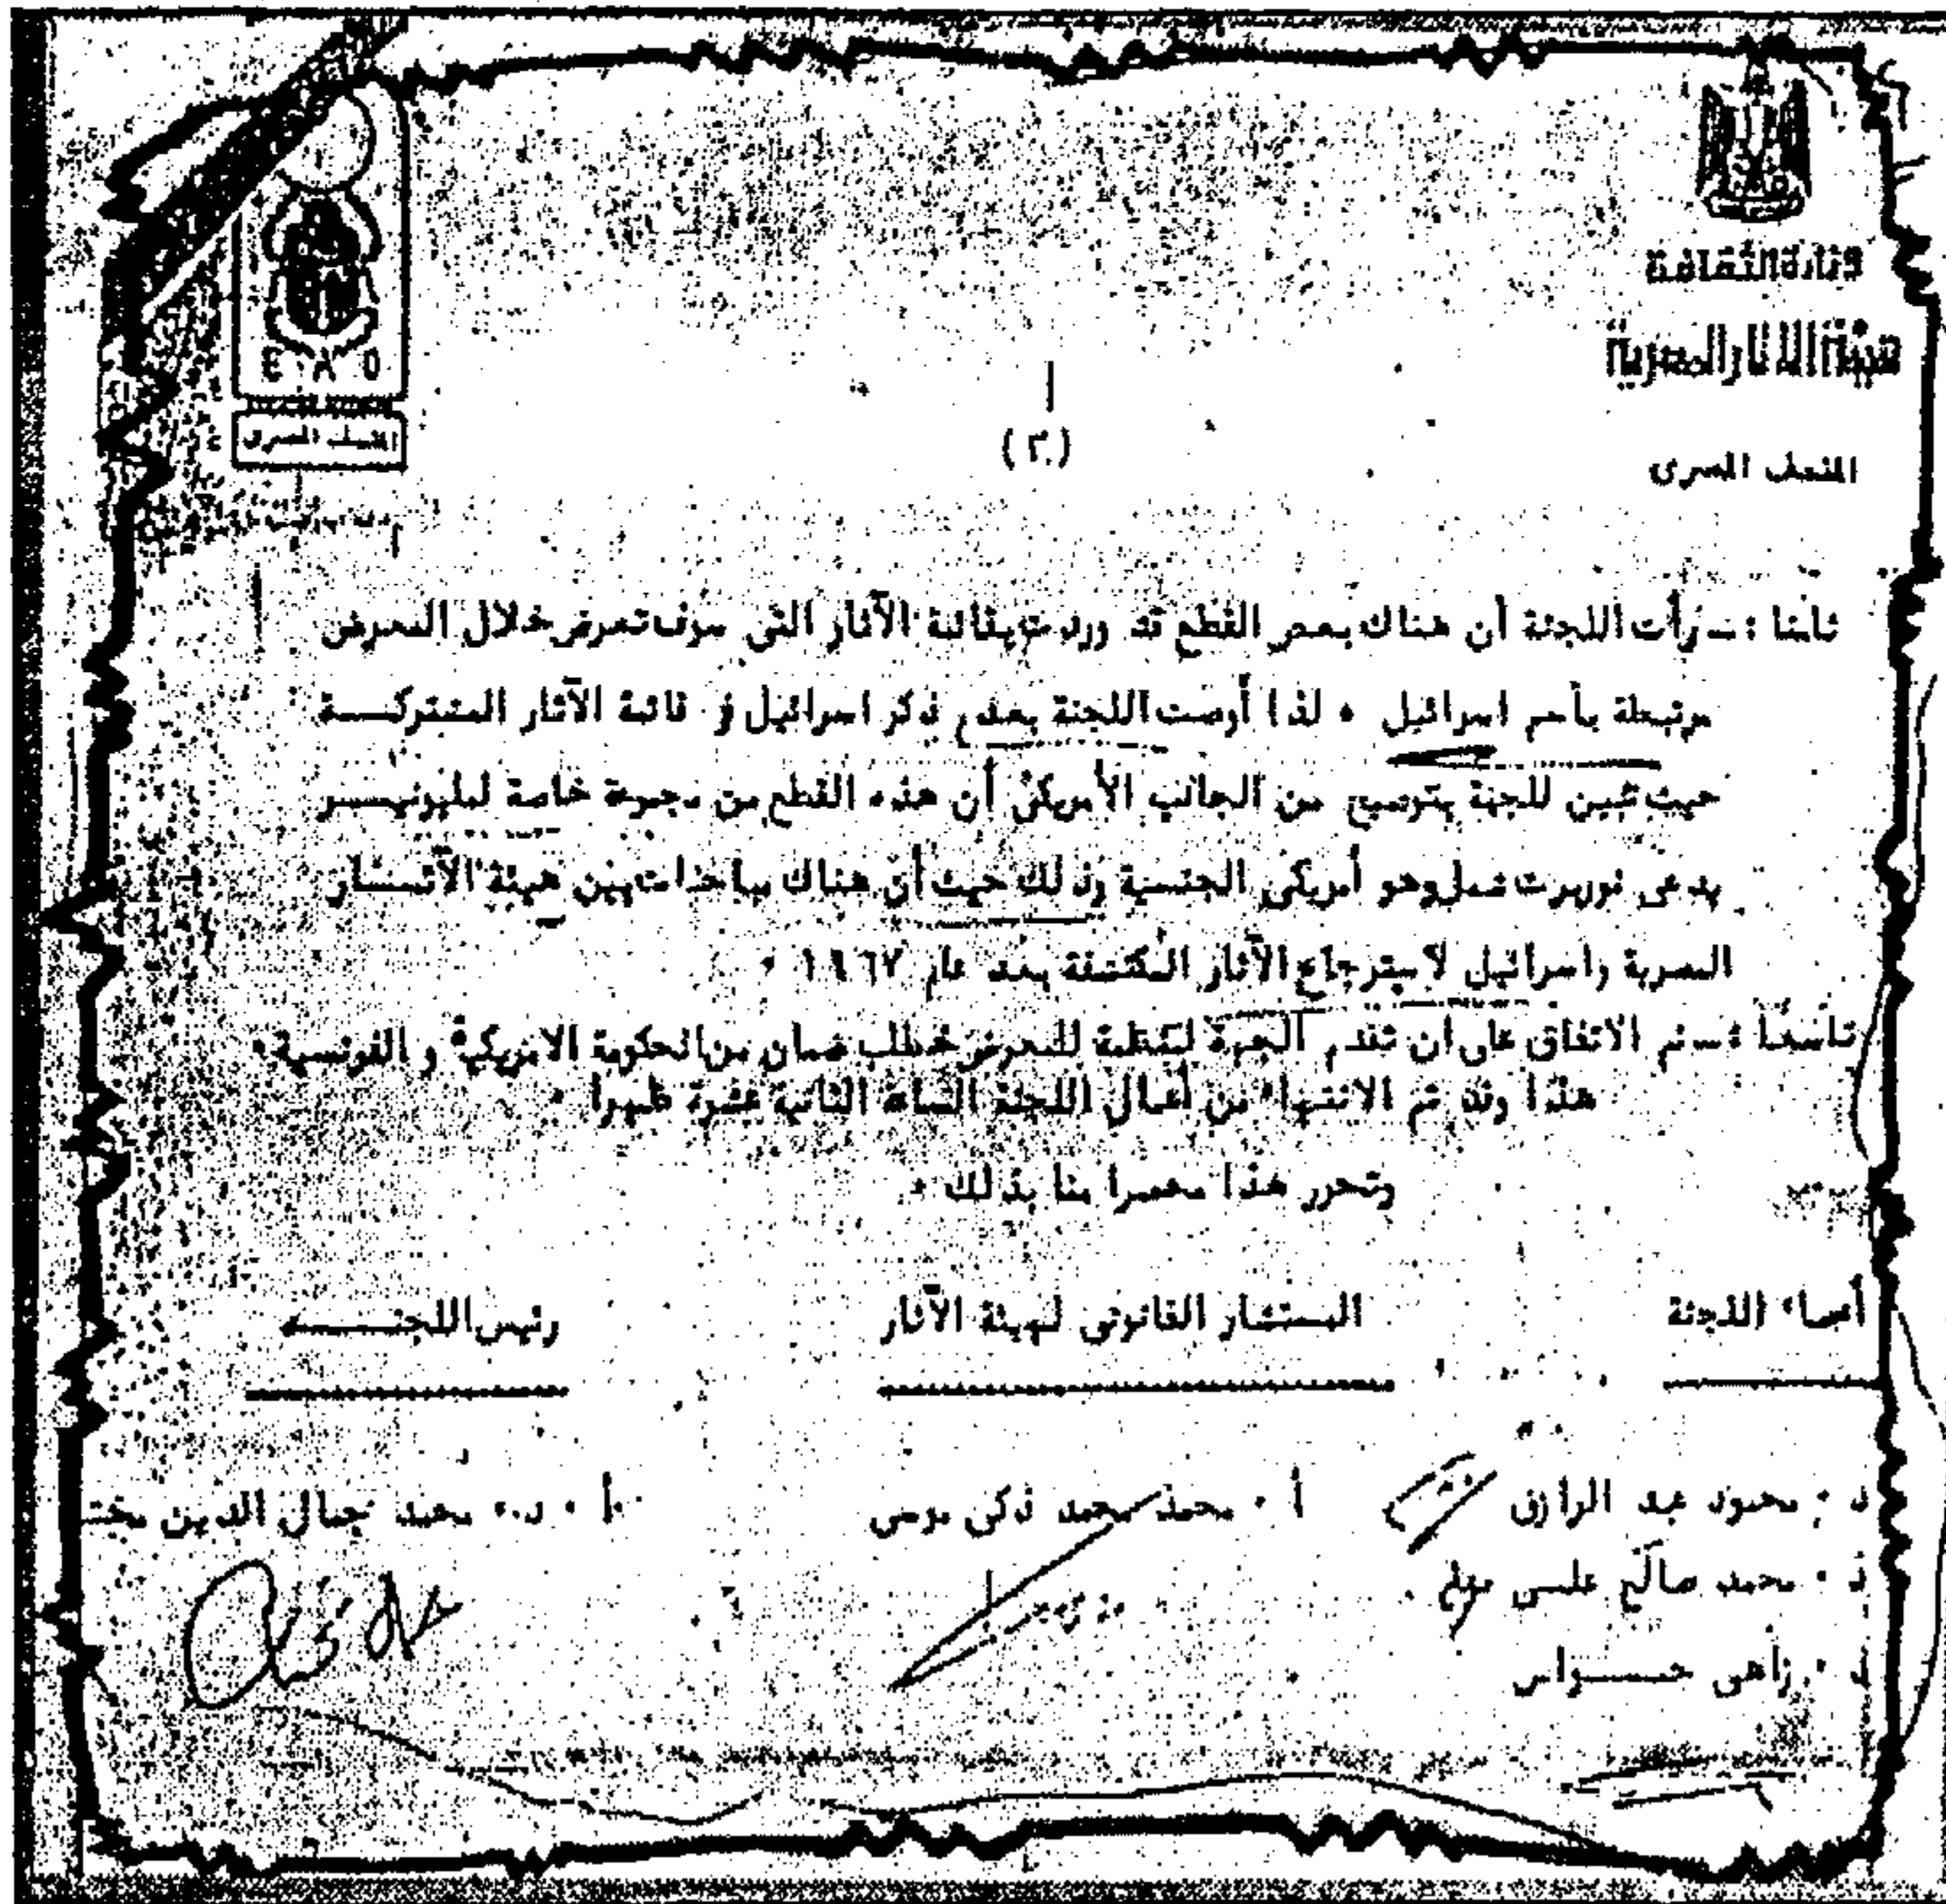 وزارة الثقافة
هيئة الآثار المصرية
المتحف المصرى
E A O
المتحف المصرى
(٣)
ثامنا : ـ رأت اللجنة أن هناك بعض القطع قد وردت بقائمة الآثار التى سوف تعرض خلال المعرض
مرتبطة بأسم اسرائيل ٠ لذا أوصت اللجنة بعدم ذكر اسرائيل فى قائمة الآثار المشتركــــة
حيث تبين للجنة بتوضيح من الجانب الأمريكى أن هذه القطع من مجموعة خاصة لمليونيـــر
يدعى نوربرت شمل وهو أمريكى الجنسية وذلك حيث أن هناك مباحثات بين هيئة الآثـــار
المصرية واسرائيل لاسترجاع الآثار المكتشفة بعد عام ١٩٦٧ ٠
تاسعا : ـ تم الاتفاق على أن تقدم الجهة المنظمة للمعرض خطاب ضمان من الحكومة الامريكية و الفرنسية ٠
هذا وقد تم الانتهاء من أعمال اللجنة الساعة الثانية عشرة ظهرا ٠
وتحرر هذا محضرا منا بذلك ٠
أعضاء اللجنة
المستشار القانونى لهيئة الآثار
رئيس اللجنـــــه
د ٠ محمود عبد الرازق
أ ٠ محمد محمد ذكى موسى
أ ٠ د ٠ محمد جمال الدين مختـ
د ٠ محمد صالح علـــى
د ٠ زاهى حـــــواس